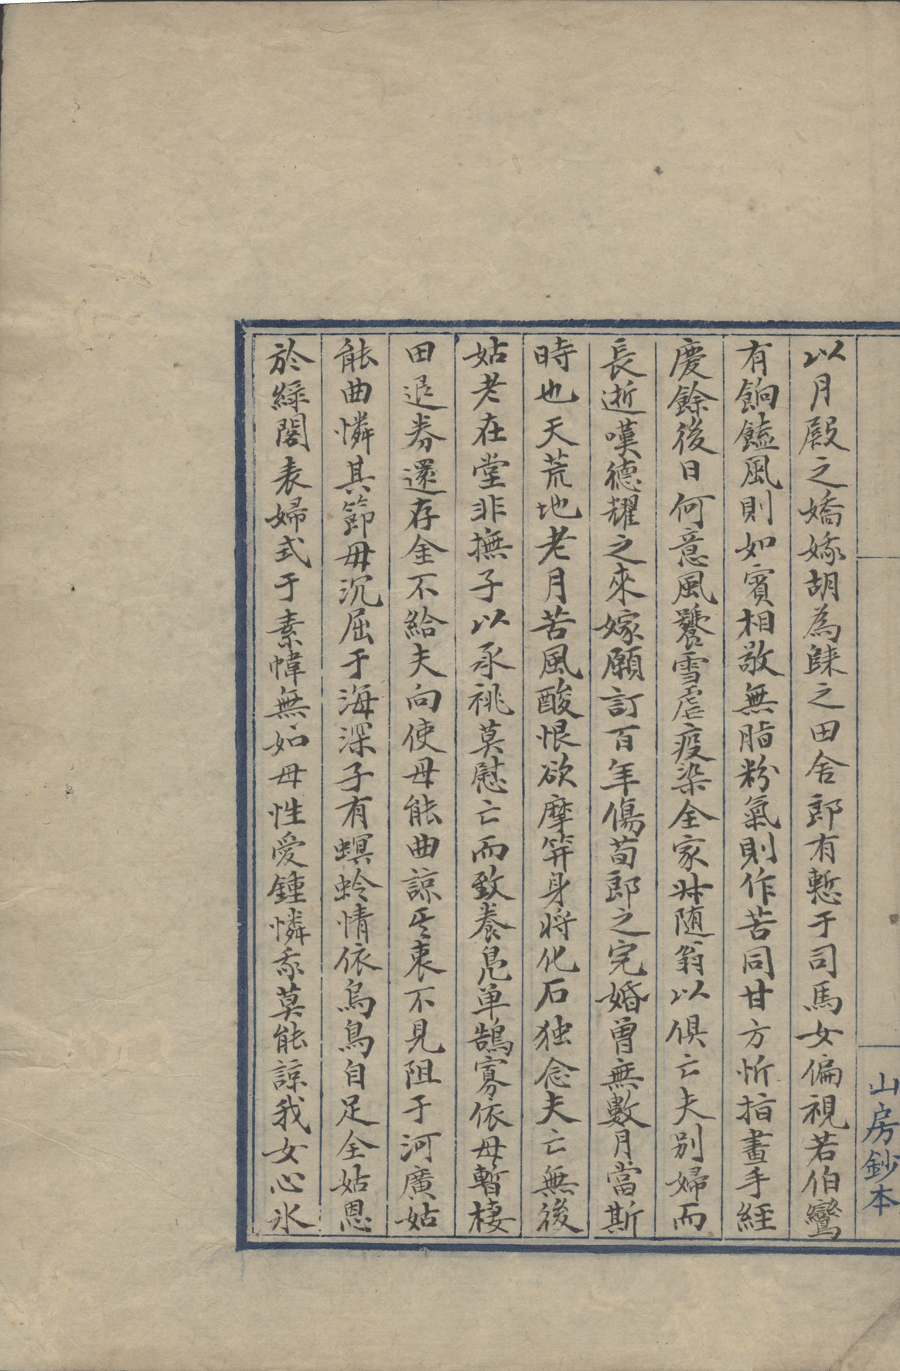 以月殿之嬌嫁胡為歸之田舍郎有慙于司馬女偏視若伯鸞
有餉饁風則如賓相敬無脂粉氣則作苦同甘方忻指畫手経
慶餘後日何意風饕雪虐疫染全家丼随翁以俱亡夫別婦而
長逝嘆德耀之來嫁願訂百年傷荀郎之完婚曾無數月當斯
時也天荒地老月苦風酸恨欲摩笄身将化石独念夫亡無後
姑老在堂非撫子以承祧莫慰亡而致養凫单鵠寡依母暫棲
田退券還存金不給夫向使母能曲諒其衷不見阻于河廣姑
能曲憐其節毋沉屈于海深子有螟蛉情依烏鳥自足全姑恩
於綵閣表婦式于素幃無如母性愛鍾憐忝莫能諒我女心氷
山房鈔本